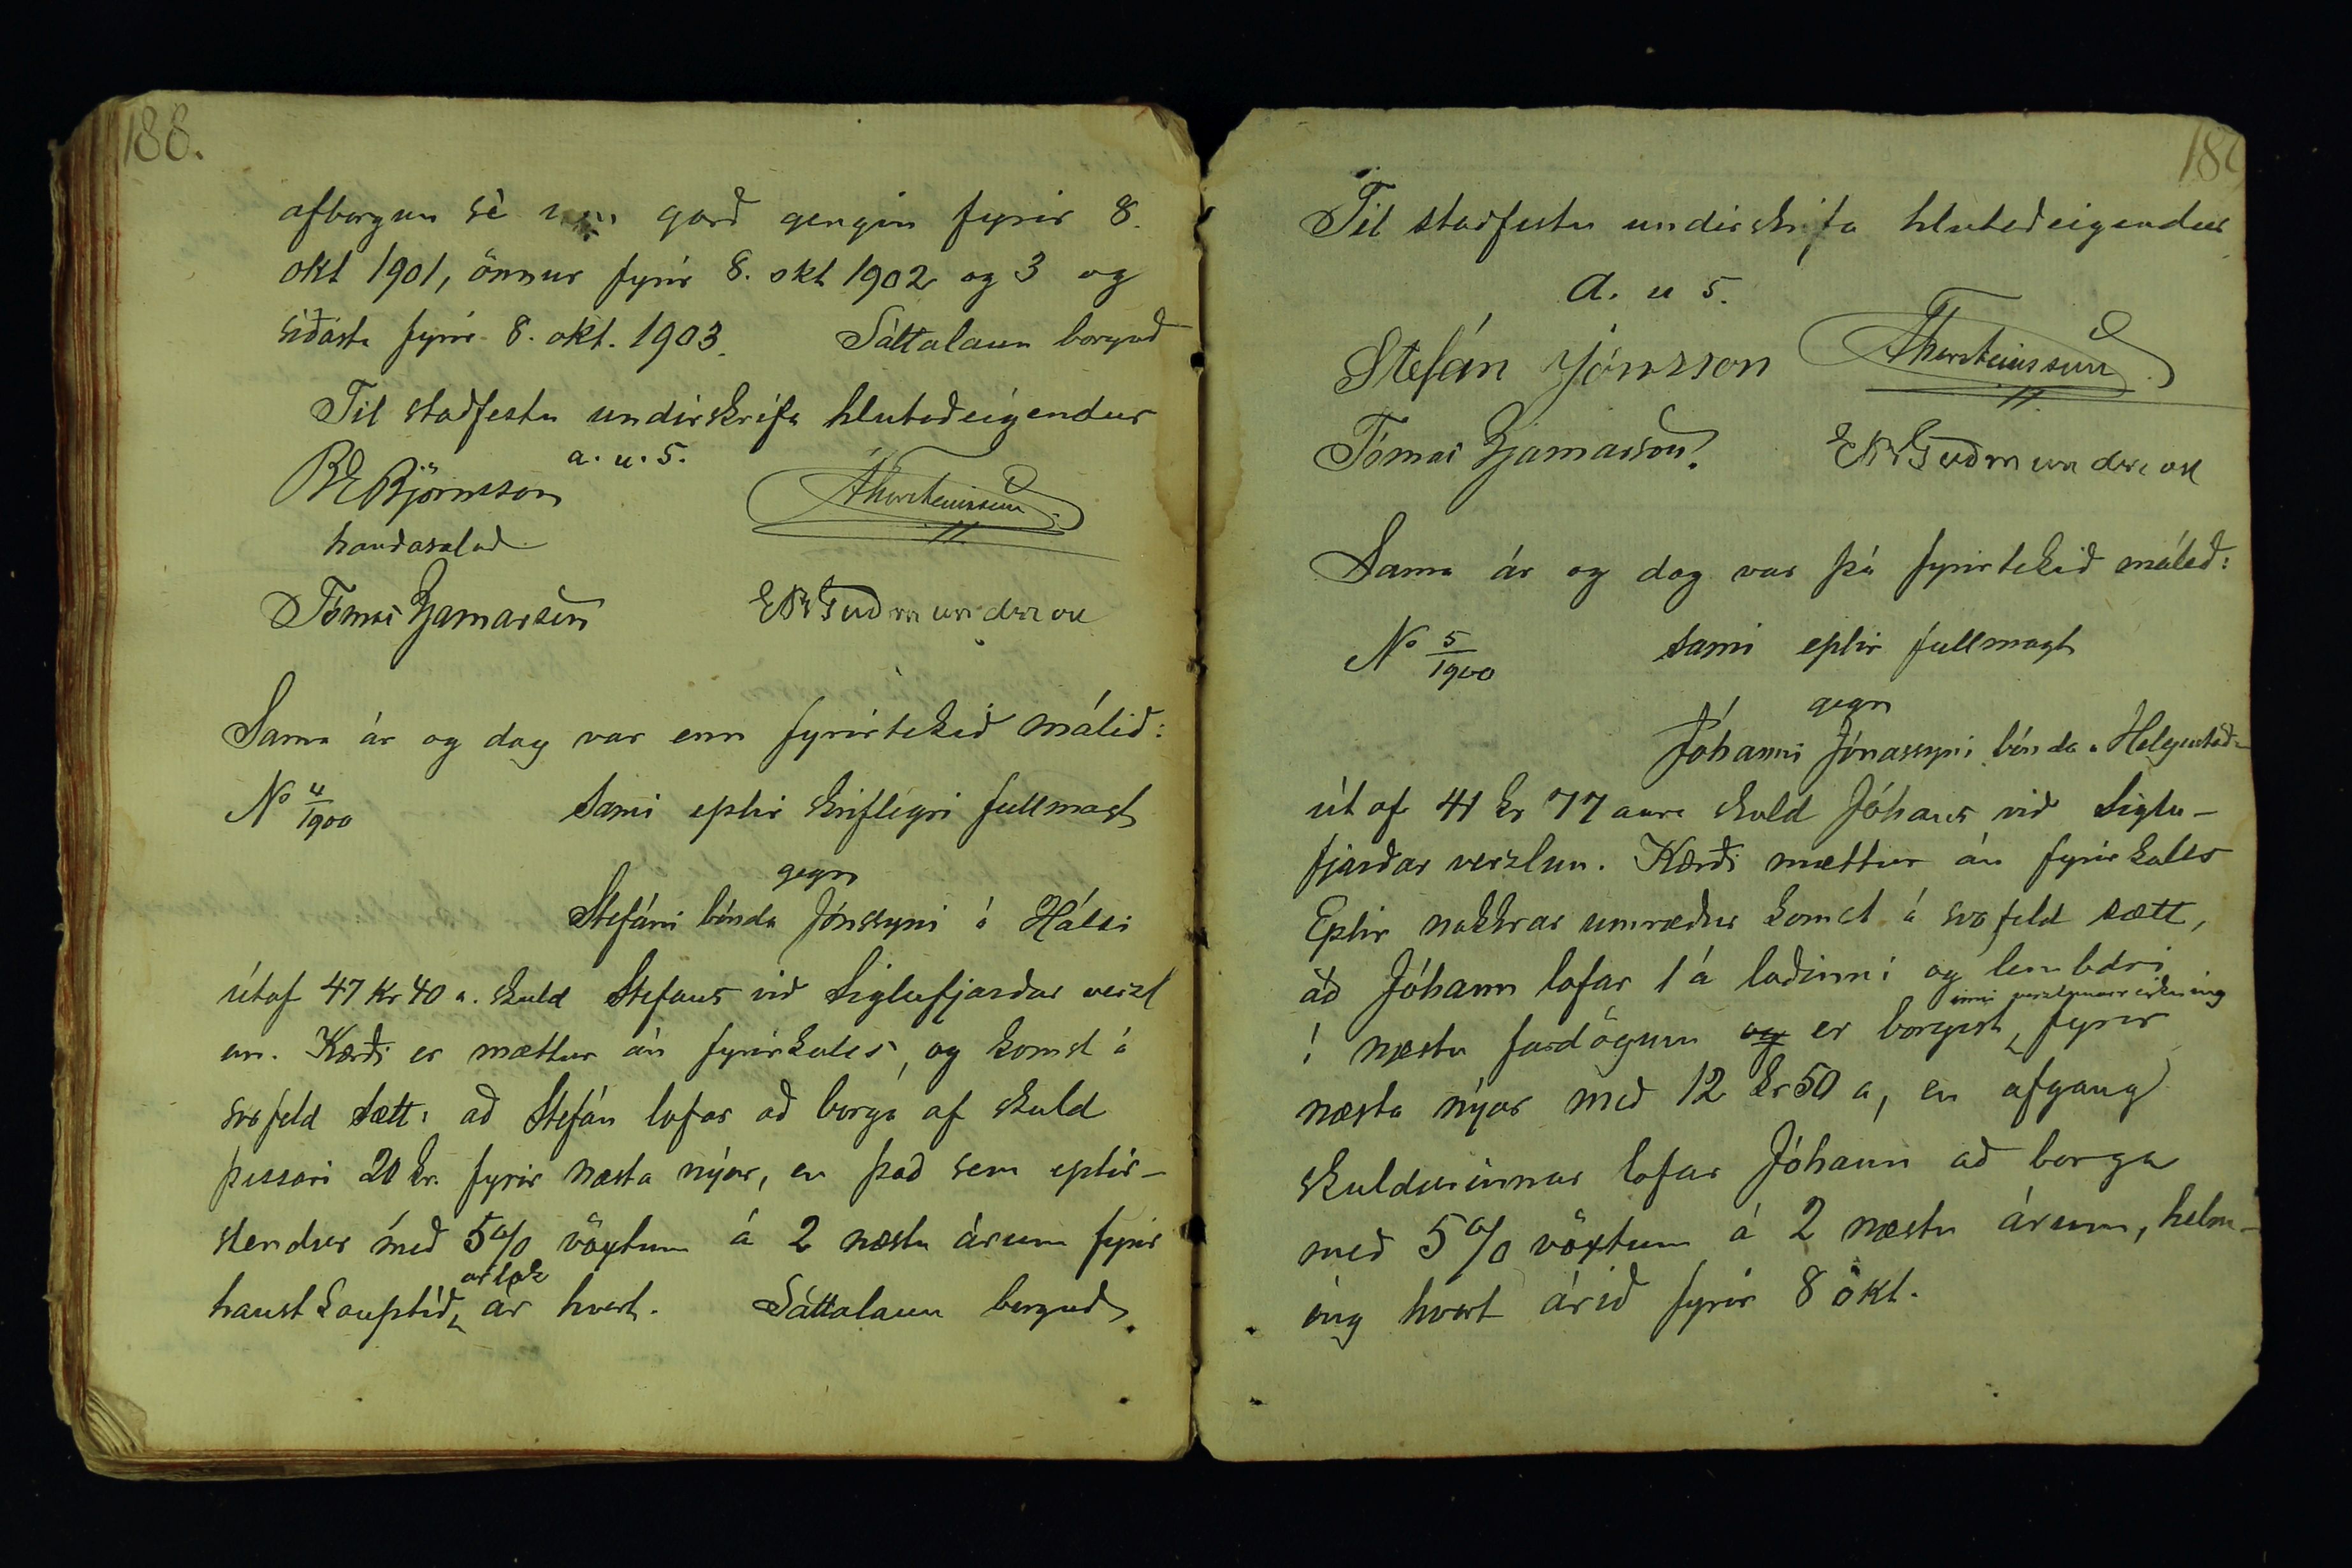 188.
afborgun sé gerð gengin fyrir 8.
okt 1901, önnur fyrir 8. okt 1902 og 3 og
síðasta fyrir 8. okt. 1903. Sáttalaun borguð
Til staðfestu undirskrifa hlutaðeigendur
a. u. s.
BEBjörnsson
handasalað
AThorsteinsson
Tómas Bjarnarson
EBGuðmundsson
Sama ár og dag var enn fyrirtekið málið:
No 4/1900 Sami eptir skriflegri fullmagt
gegn
Stefáni bónda Jónssyni á Hálsi
útaf 47 kr 40 a. skuld Stefans við Siglufjarðar verzl
un. Kærði er mættur án fyrirkalls, og komst á
svofeld sætt: að Stefán lofar að borga af skuld
þessari 20 kr. fyrir næsta nýár, en það sem eptir-
stendur með 5% vöxtum á 2 næstu árum fyrir
haustkauptíðar lok ár hvert. Sáttalaun borguð.
189
Til staðfestu undirskrifa hlutaðeigendur
a. u s.
Stefán Jónsson AThorsteinsson
Tómas Bjarnarson. EBGuðmundsson
Sama ár og dag var þá fyrirtekið málið:
No 5/1900 Sami eptir fullmagt
gegn
Jóhanni Jónassyni bónda á Helgustöð-
út af 41 kr 77 aura skuld Jóhans við Siglu-
fjarðar verzlun. Kærði mættur án fyrirkalls
Eptir nokkrar umræður komst á svofeld sætt,
að Jóhann lofar 1 á loðinni og lembdri
í næstu fardögum og er borgist inní verzlunarreikning fyrir
næsta nýár með 12 kr 50 a, en afgang
skuldarinnar lofar Jóhann að borga
með 5% vöxtum á 2 næstu árum, helm-
ing hvert árið fyrir 8 okt.